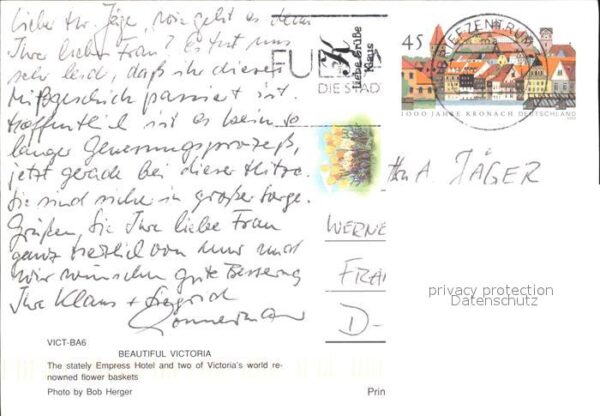 Lieber Hr. Jäger, wie geht es denn
Ihrer lieben Frau? Es tut uns
sehr leid, daß ihr dieses
Mißgeschick passiert ist.
Hoffentlich ist es kein so
langer Genesungsprozeß,
jetzt gerade bei dieser Hitze.
Sie sind sicher in großer Sorge.
Grüßen Sie Ihre liebe Frau
ganz herzlich von uns und
wir wünschen gute Besserung
Ihre Klaus +
VICT-BA6
BEAUTIFUL VICTORIA
The stately Empress Hotel and two of Victoria's world re-
nowned flower baskets
Photo by Bob Herger
FU
DIE STAD
Liebe Grüße
Klaus
BRIEFZENTRUM
45
1000 JAHRE KRONACH DEUTSCHLAND
A. JÄGER
WERNE
FRA
D-
privacy protection
Datenschutz
Prin